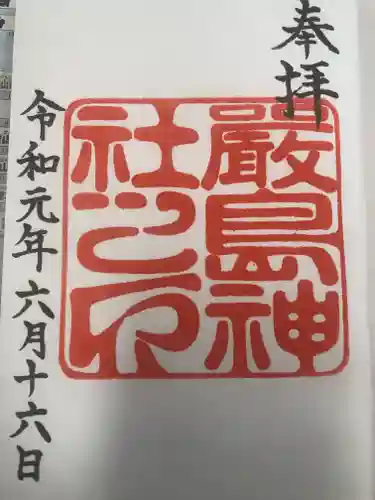 奉拝
嚴島神
社之印
令和元年六月十六日